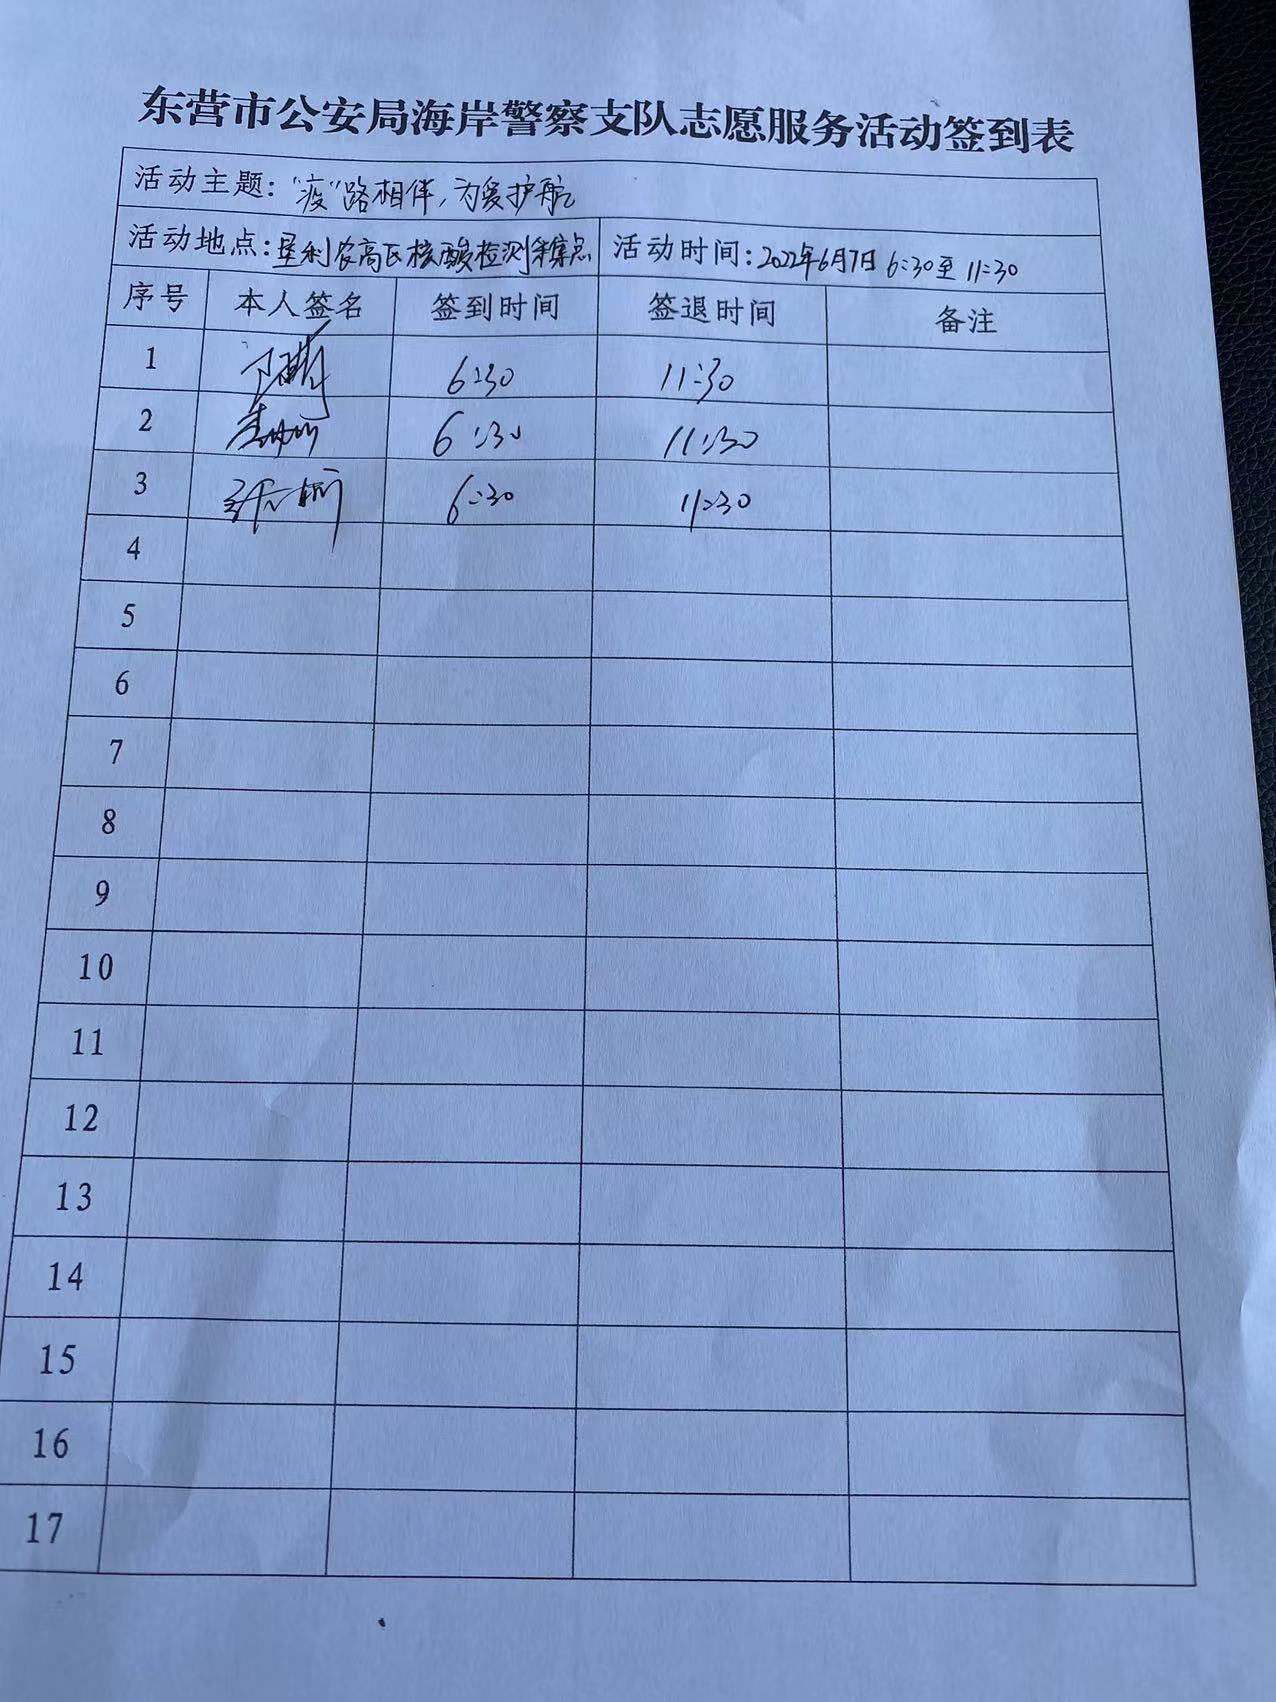 东营市公安局海岸警察支队志愿服务活动签到表
活动主题：“疫”路相伴，为爱护航
活动地点：垦利农高区核酸检测采集点 活动时间：2022年6月7日 6:30至11:30
序号 本人签名 签到时间 签退时间 备注
1 6:30 11:30
2 6:30 11:30
3 6:30 11:30
4
5
6
7
8
9
10
11
12
13
14
15
16
17